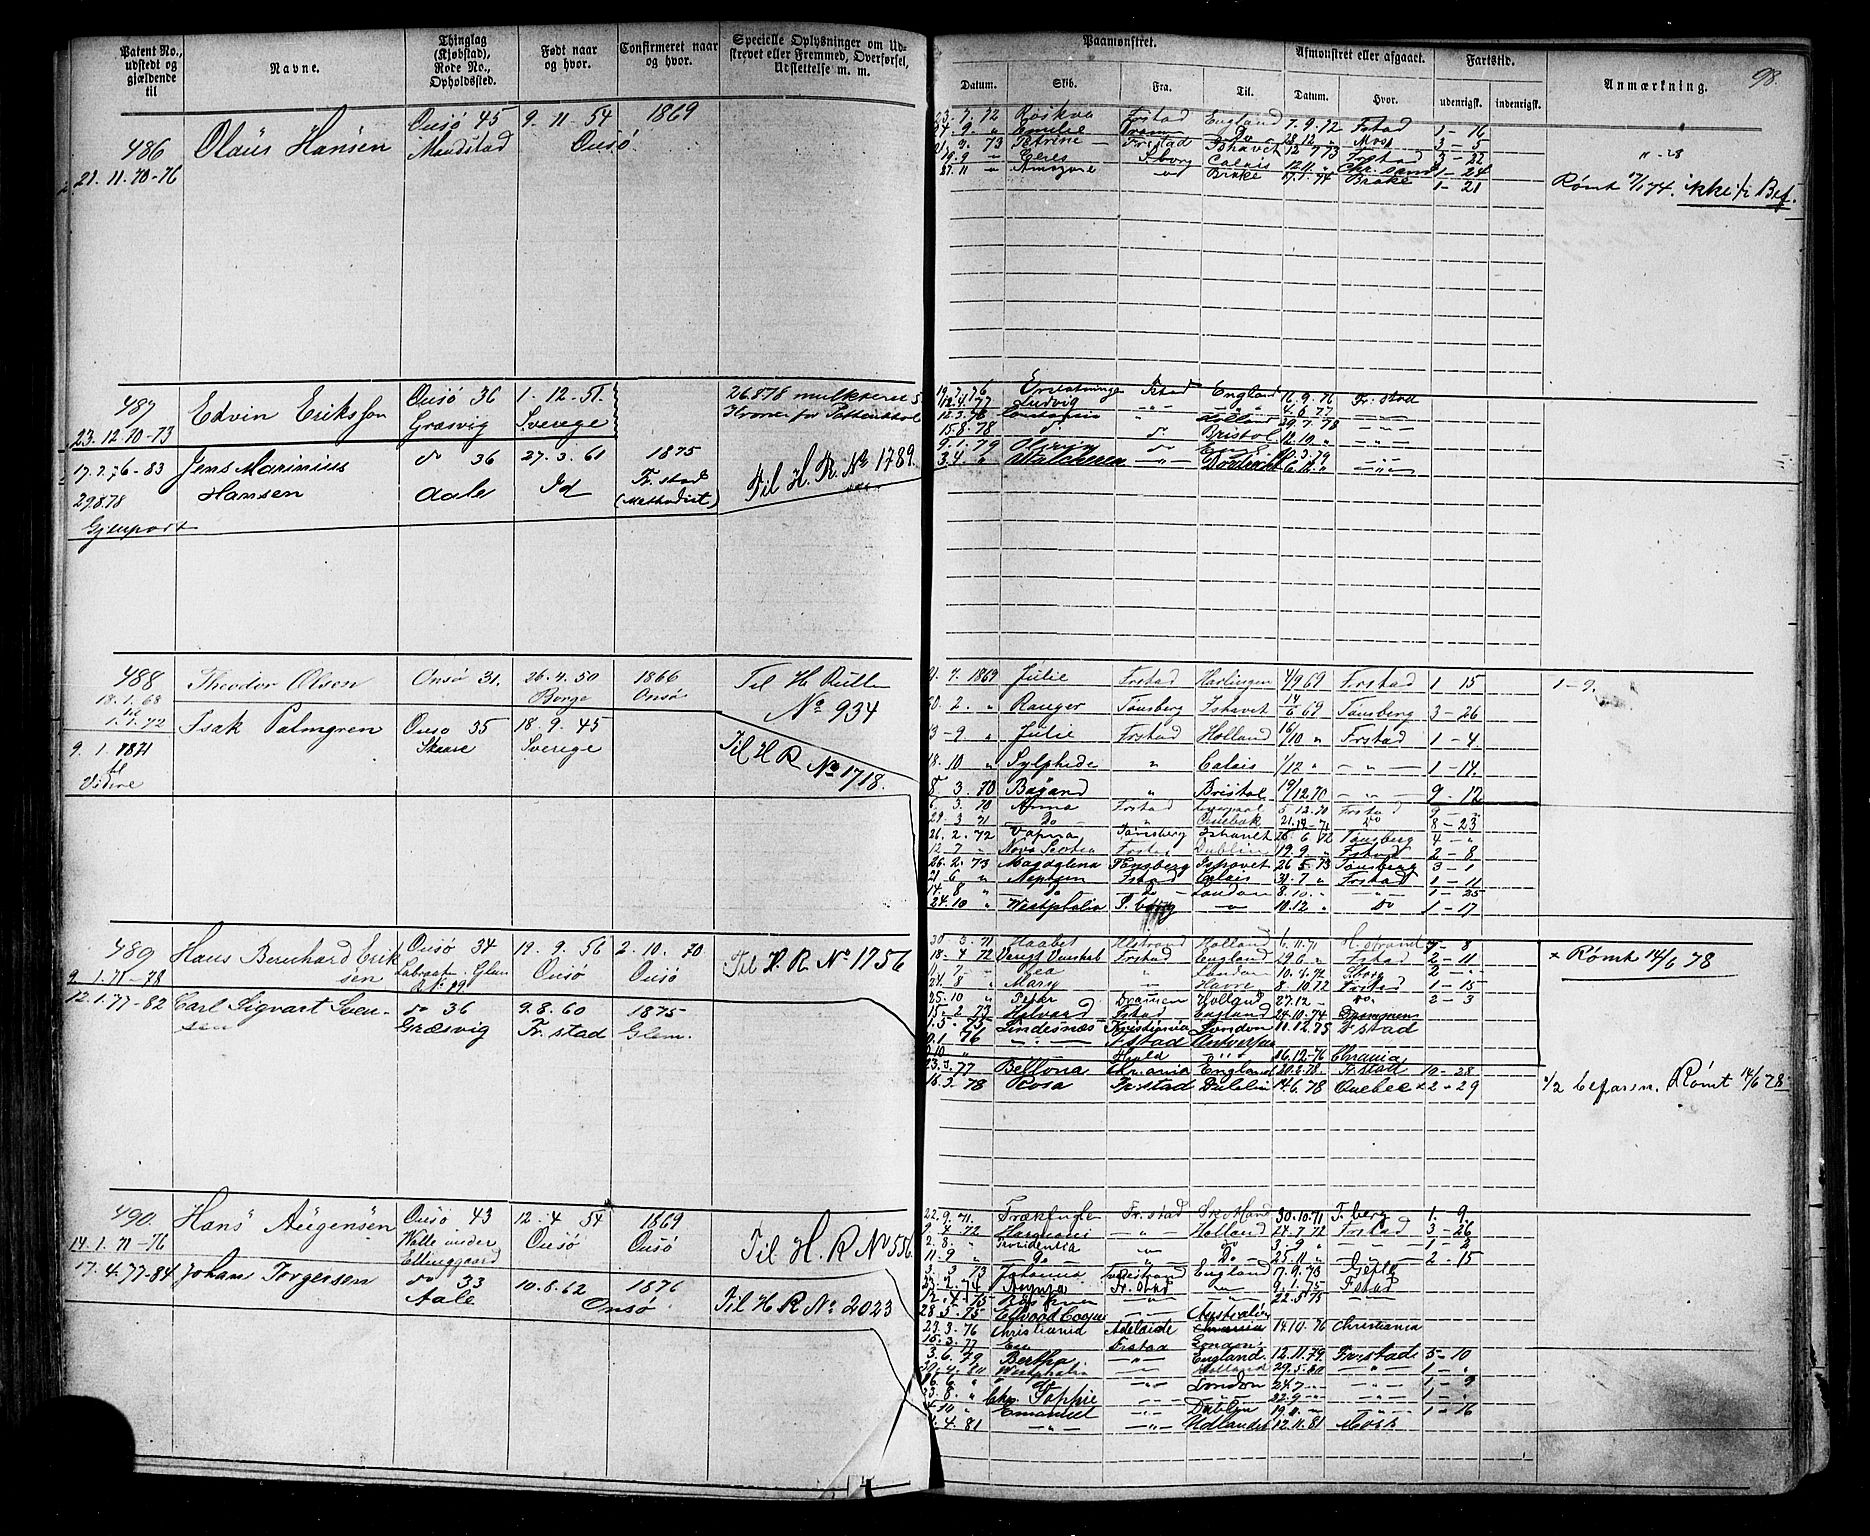 Patent No., udstedt og gjældende til
Navne.
Thinglag (Kjøbstad), Rode No., Opholdssted.
Født naar og hvor.
Confirmeret naar og hvor.
Specielle Oplysninger om Udstrevet eller Fremmed, Overførsel, Udslettelse m. m.
Paamønstret.
Datum. Skib. Fra. Til.
Afmønstret eller afgaaet.
Datum. Hvor.
Fartstid.
udenrigsk. indenrigsk.
Anmærkning.
98.
486
21.11.70-76
Olaus Hansen
Onsø 45
Maudstad
9. 11. 54
Onsø
1869
23.7.72 Röskva Frstad England 7.9.72 Fstad 1-16
24.9. " Emilie Dram Do 28.12 " Moss 3-5
21.3.73 Petrine Frstad Ishavet 12.7 73 Frstad 3-22
19.9 " Ceres F.borg Calais 12.11 Chr.sand 1-24
27.11 " Brake 17.1.74 Brake 1-21
Rømt 17/1 74. ikke i/ Bef.
487
23.12.70-73
Edvin Eriksson
Onsø 36
Græsvig
1. 12. 51.
Sverege
26.8.78 mulkteret 5
Kroner for
17.2.76-83
29.8.78
Gjenpart
Jens Marinius
Hansen
do 36
Aale
27.3.61
Id
1875
Fr.stad
(Methodist)
Til H. R. No 1789.
19.7.76 Fstad England 16.9.76 Fr.stad
12.4.77 Ludvig -"- -"- 4.6.77 -"-
12.3.78 Holland 29.7.78 -"-
15.8.78 do Bristol 12.10 " -"-
9.1.79 do Engl. 10.3.79 -"-
3.4. " -"- Dordrecht -"-
488
18.1.68
til
1.4.72
Theodor Olsen
Onsø 31.
26.4.50
Borge
1866
Onsø
Til H Rulle
No 934
9.1.1871
til
Videre
Isak Palmgren
Onsø 35
Skaare
18.9.45
Sverege
Til H R No 1718.
21.7.1869 Julie Frstad Harlingen 4/9 69 Frstad 1-15
1-9.
20.2. " Ranger Tønsberg Ishavet 14/6 69 Tønsberg 3-26
3-9 " Julie Frstad Holland 16/10 " Frstad 1-4
18.10 " Sylphide " Calais 1/12 " -"- 1-14.
8.3.70 Bøgand " Bristol 19/12.70 -"- 9-12
6.3.70 Anna Frstad 5.12.70 Frstad 9-
29.3 71 -Do- " Quebek 71 Do 8-23
26.2.72 Vapnia Tønsberg Ishavet 26.6 72 Tønsberg 4-"
12.7 " Nova Scotia Frstad Dublin 19.9 " Fstad 2-8
26.2.73 Magdalena Tønsberg Ishavet 26.5.73 Tønsberg 3-1
21.6 " Neptun Fstad Calais 31.7 " Frstad 1-11
14.8 " do Do London 8.10 " -"- 1-25
24.10 " Westphalia F.borg -"- 10.12 " Do 1-17
489
2.1.71-78
Hans Bernhard Eriksen
Onsø 34
19.9.56
Onsø
2.10.70
Onsø
Til H. R. No 1756
12.1.77-82
Carl Sigvart Svensen
do 36
Græsvig
9.8.60
Fr.stad
1875
Glem.
30.3.71 Haabet Holland 6.11.71 7-8
18.4 72 Fstad England 29.6 " Fstad 2-11
11.7 " London 10.8.72 2-"
24.8 " Mary " Havre 8.10.72 Frstad 1-15
25.10 " Peter Dramen Holland 27.12 - Do 2-3
15.2 73 Halvard Fstad England 24.10.74 Drammen
1.5.75 Lindesnæs Kristiania London 11.12.75 Fstad
0.1 76 -"- Frstad Antverpen
16.12-76 Chrania
23.3.77 Bellona Chrania England 20.2.78 Fr.stad 10-28
16.3.78 Rosa Fr.stad Dublin 14.6.78 Quebec x 2-29
x Rømt 14/6 78
1/2 befaren. Rømt 14/6 78
490.
14.1.71-76
Hans Augensen
Onsø 43
Walle under
Ellinggaard
12.4.54
Onsø
1869
Onsø
Til H. R No 556
17.4.77-84
Johan Torgersen
do 33
Aale
10.8.62
Onsø
1876
Til H R No 2023
22.9.71. Trækfuglen Fr.stad Skotland 30.10.71 F.berg 1.9.
9.4.72 -"- Holland 17.7.72 Frstad 3-26
2.8. " Providentia -"- Do 3.9 " -"- 1-2
11.9 " Do -"- Do- 25.11 " - 2-15
3.3.73 Johanna England 7.9.73 Gefle
Fr.stad -"- 9.1.75 Fstad
12.4.75 -"- 22.5 75 -"-
28.5.75 Ellwood Cooper Australien
23.3.76 Christiania Adelaide 14.10.76 Christiania
15.3.77 Eu Frstad
3.6.79 Bertha -"- England 12.11.79 Fr.stad 5-10
30.4.80 Westphalia -"- Holland 29.5.80 -"- 1-"
26.6 " do -"- London 24.7 -"- 1-
23.8. " Sophie -"- " 22.9 - " -"- 1-"
4.10 " Emanuel -"- Dublin 19.11.- -"- 1-16
1.4.81 -"- -"- Udlandet 12.11.81 Moss